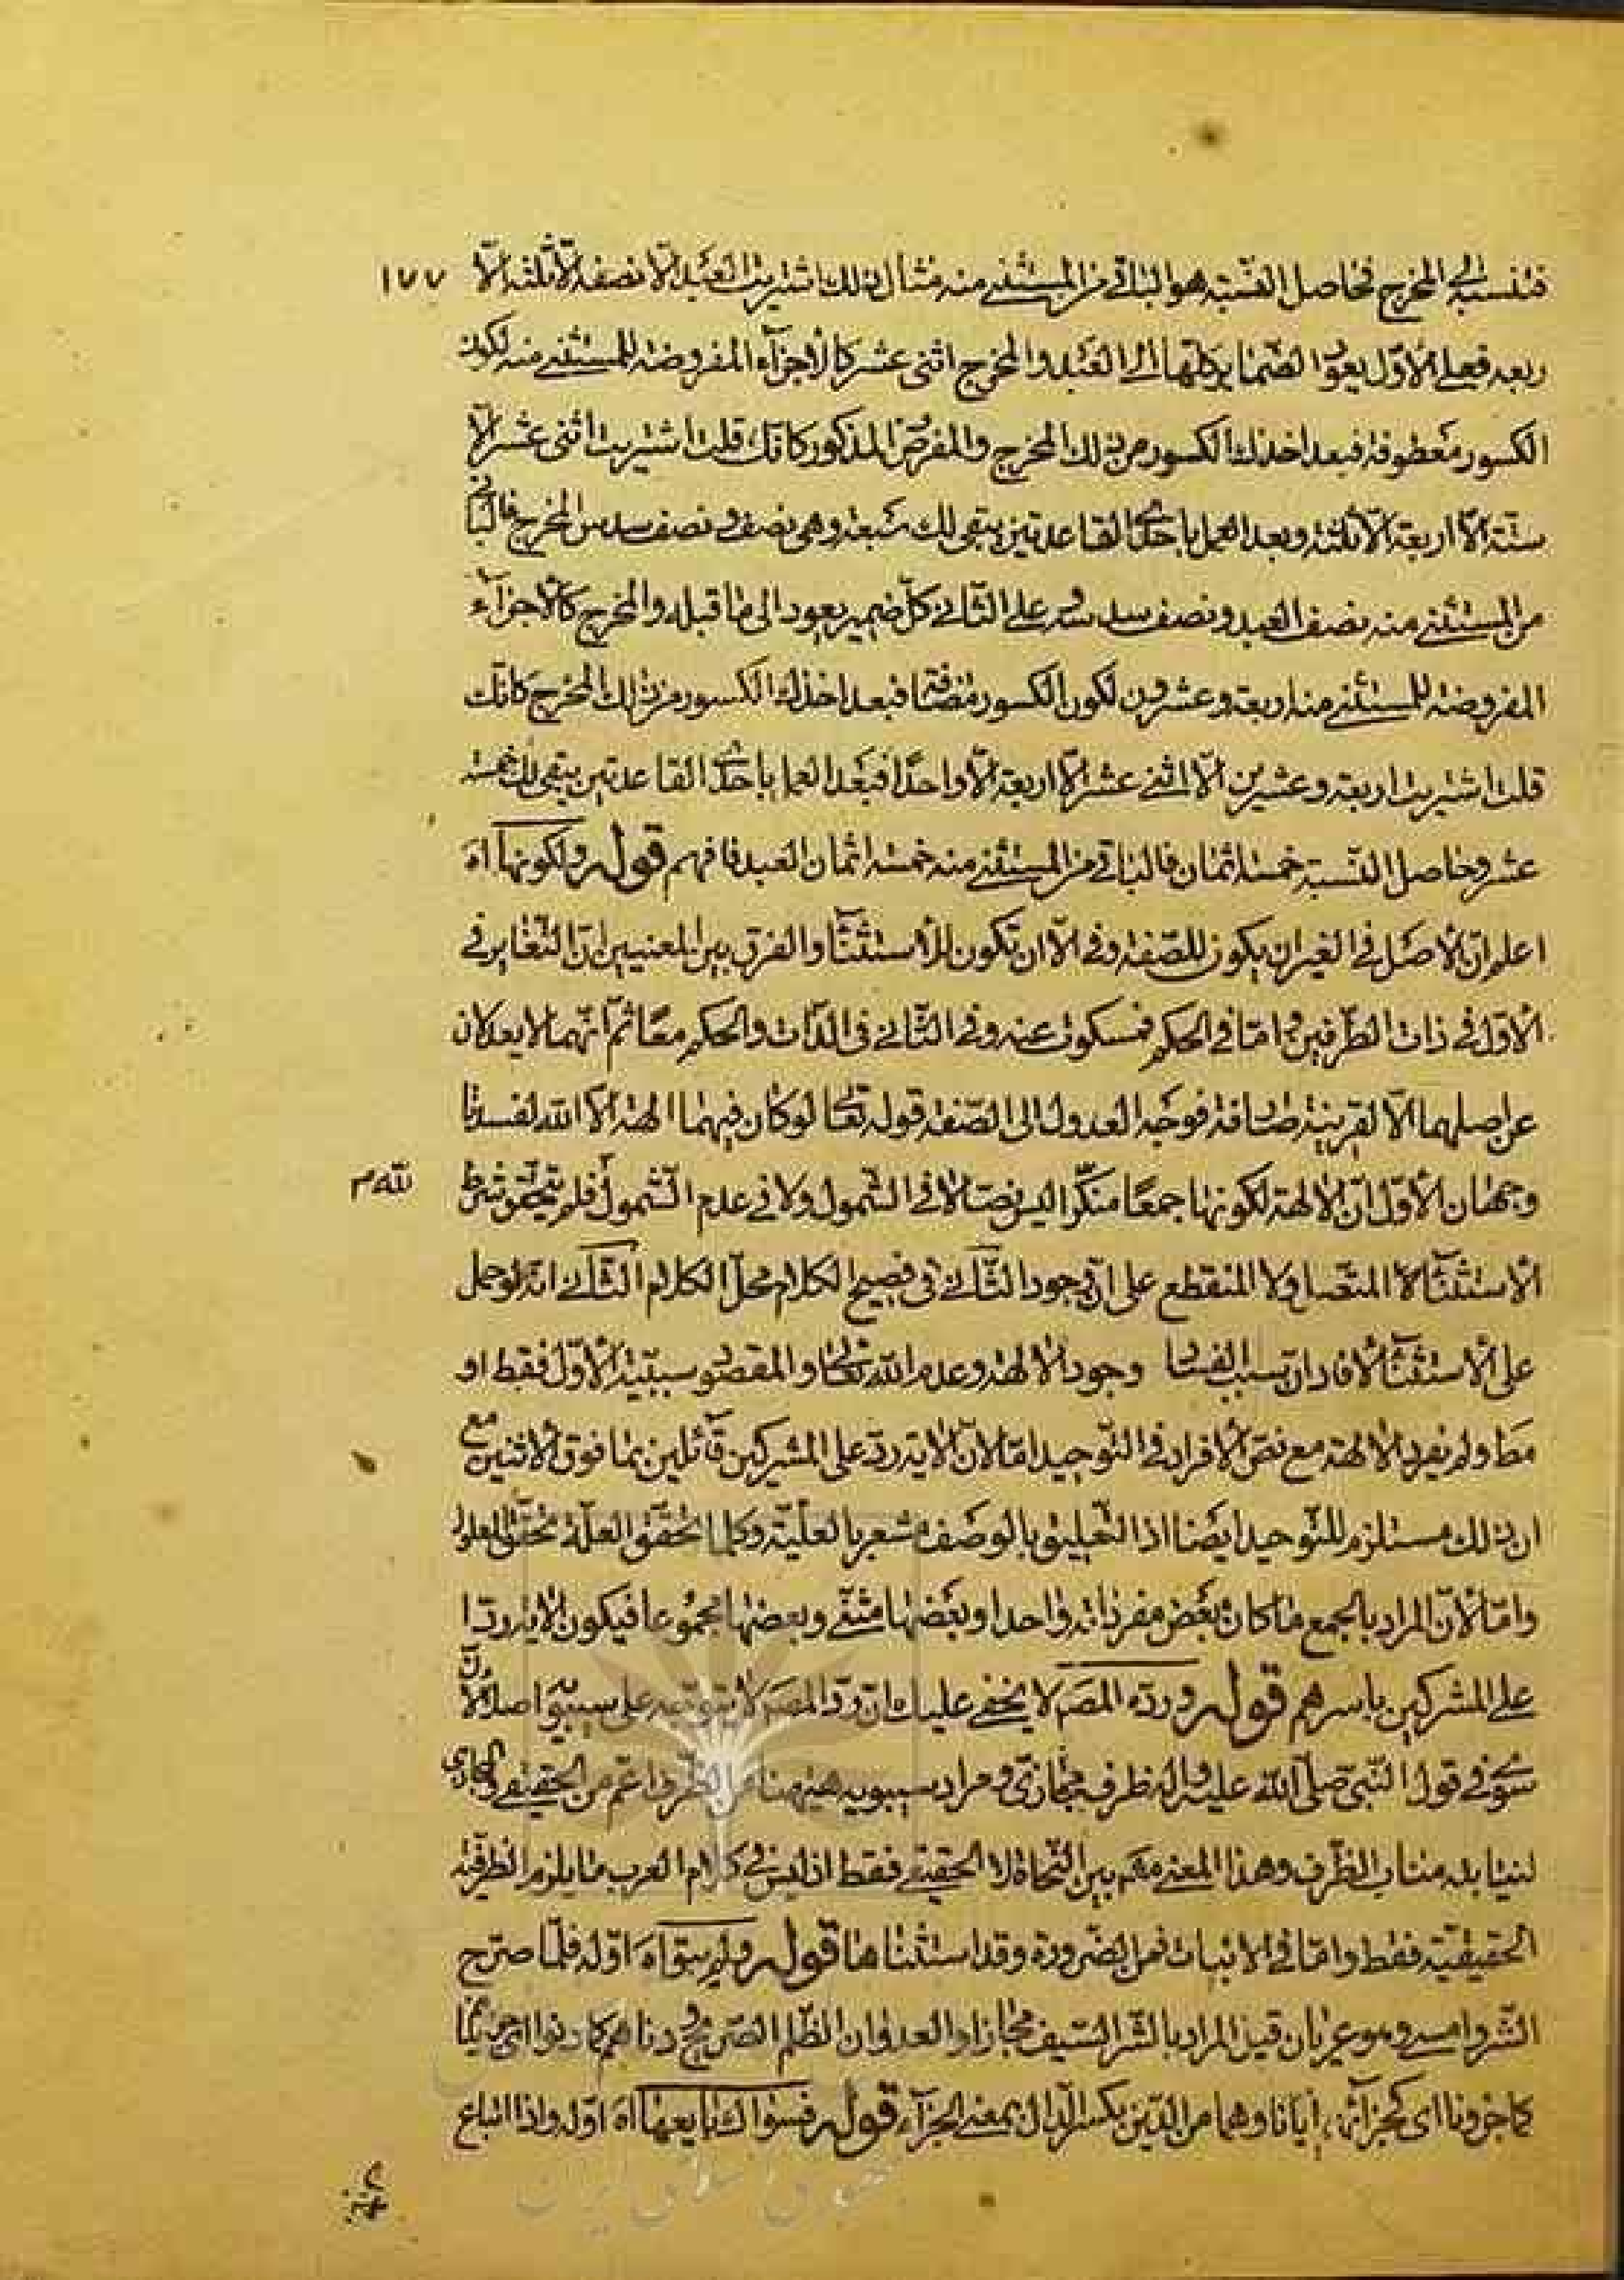 فتنسبه الى المخرج فحاصل النسبة هو الباقي من المستثنى منه مثال ذلك اشتريت العبد الا نصفه الا ثلثه الا ١٧٧
ربعه فعلى الاول يعود الضماير كلها الى العبد والمخرج اثنى عشر كالاجزاء المفروضة للمستثنى منه لكون
الكسور معطوفة فبعد اخذ تلك الكسور من ذلك المخرج والمفروض المذكور كانك قلت اشتريت اثنى عشر الا
ستة الا اربعة الا ثلثة وبعد العمل باحدى القاعدتين يبقى لك سبعة وهي نصف ونصف سدس المخرج فالباقي
من المستثنى منه نصف العبد ونصف سدسه وعلى الثاني كل ضمير يعود الى ما قبله والمخرج كالاجزاء
المفروضة للمستثنى منه اربعة وعشرون لكون الكسور مضافة فبعد اخذ تلك الكسور من ذلك المخرج كانك
قلت اشتريت اربعة وعشرين الا اثنى عشر الا اربعة الا واحدا فبعد العمل باحدى القاعدتين يبقى لك خمسة
عشر وحاصل النسبة خمسة اثمان فالباقي من المستثنى منه خمسة اثمان العبد فافهم قوله ولكونها اه
اعلم ان الاصل في الغير ان يكون للصفة وفي الا ان تكون للاستثناء والفرق بين المعنيين ان التغاير في
الاول في ذات الطرفين واما في الحكم فمسكوت عنه وفي الثاني في الذات والحكم معا ثم انهما لا يعدلان
عن اصلهما الا لقرينة صارفة فوجه العدول الى الصفة قوله تعالى لو كان فيهما الهة الا الله لفسدتا
وجهان الاول ان الالهة لكونها جمعا منكرا ليس نصا لا في الشمول ولا في عدم الشمول فلم يتحقق شرط
الاستثناء لا المتصل ولا المنقطع على ان وجود الثاني في فصيح الكلام محل الكلام الثاني انه لو حمل
على الاستثناء لافاد ان سبب الفساد وجود الالهة وعدم الله تعالى والمقصود سببية الاول فقط او
مط ولم يفرد الالهة مع نص الافراد في التوحيد اما لان الاية رد على المشركين قائلين بما فوق الاثنين مع
ان ذلك مستلزم للتوحيد ايضا اذ التعليق بالوصف مشعر بالعلية وكلما تحقق العلة تحقق المعلول
واما لان المراد بالجمع ما كان بعض مفرداته واحدا وبعضها مثنى وبعضها مجموعا فيكون الاية ردا
على المشركين باسرهم قوله ورده المص لا يخفى عليك ان رد المص لا يتوجه على سيبويه اصلا لان
سوى في قول النبي صلى الله عليه واله ظرف مجازي ومراد سيبويه هيهنا من الظرف اعم من الحقيقي والمجازي
لنيابته مناب الظرف وهذا المعنى مفهم بين النحاة لا الحقيقي فقط اذ ليس في كلام العرب ما يلزم الظرفية
الحقيقية فقط واما في الابيات فمن الضرورة وقد استثناها قوله ولم يبق اه اوله فلما صرح
الشر وامسى وهو عريان قيل المراد بالشر السيف مجازا والعدوان الظلم الصريح ودناهم كما دنوا اى جزيناهم
كما جزونا اى كجزائهم ايانا وهما من الدين بكسر الدال بمعنى الجزاء قوله فسواك بايعها اه اوله واذا تباع